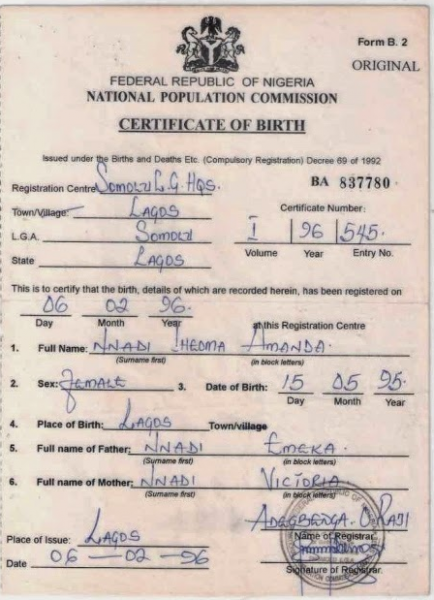 Form B. 2
ORIGINAL
FEDERAL REPUBLIC OF NIGERIA
NATIONAL POPULATION COMMISSION
CERTIFICATE OF BIRTH
Issued under the Births and Deaths Etc. (Compulsory Registration) Decree 69 of 1992
Registration Centre SOMOLU L.G. HQS.
BA 837780
Town/Village: LAGOS
Certificate Number:
L.G.A. SOMOLU
I 96 545.
State LAGOS
Volume Year Entry No.
This is to certify that the birth, details of which are recorded herein, has been registered on
06 02 96.
Day Month Year at this Registration Centre
1. Full Name: NNADI IHEOMA AMANDA.
(Surname first) (in block letters)
2. Sex: FEMALE 3. Date of Birth: 15 05 95.
Day Month Year
4. Place of Birth: LAGOS Town/village
5. Full name of Father: NNADI EMEKA.
(Surname first) (in block letters)
6. Full name of Mother: NNADI VICTORIA
(Surname first) (in block letters)
ADEGBENGA O. RAJI
Place of Issue: LAGOS
Name of Registrar
Date 06 — 02 — 96
Signature of Registrar.